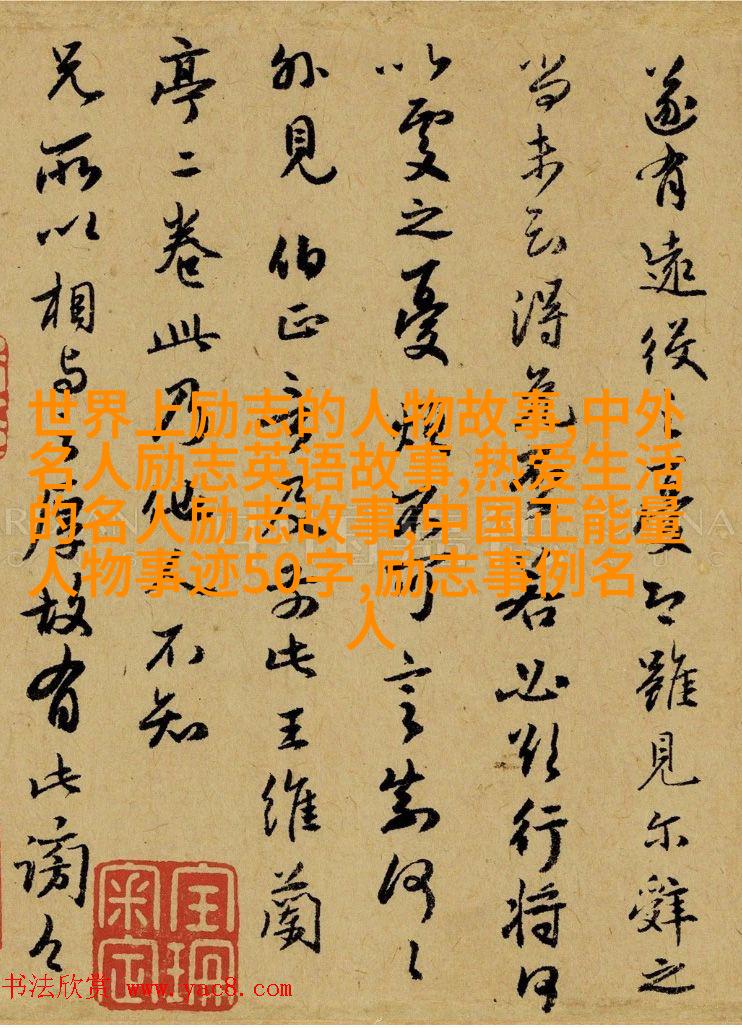 遂有遠役憂雖見尓辞之
当未云得免若必欲行将何
以之憂煩可言奈何々
外見伯正此王維蘭
亭二卷此乃他不知
兄所以相与厚故有此謗々
世界上励志的人物故事,中外
名人励志英语故事,热爱生活
的名人励志故事,中国正能量
人物事迹50字,励志事例名
人
书法欣赏 www.yac8.com